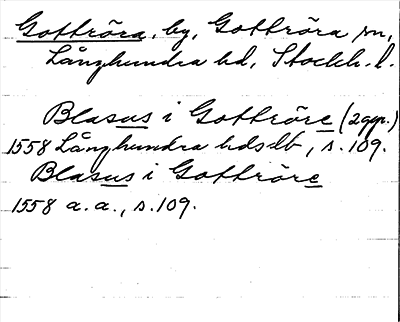 Gottröra, by, Gottröra sn,
Långhundra hd, Stockh. l.
Blasus i Gottröre (2ggr.)
1558 Långhundra hdslb, s. 109.
Blasus i Gottröre
1558 a. a., s. 109.